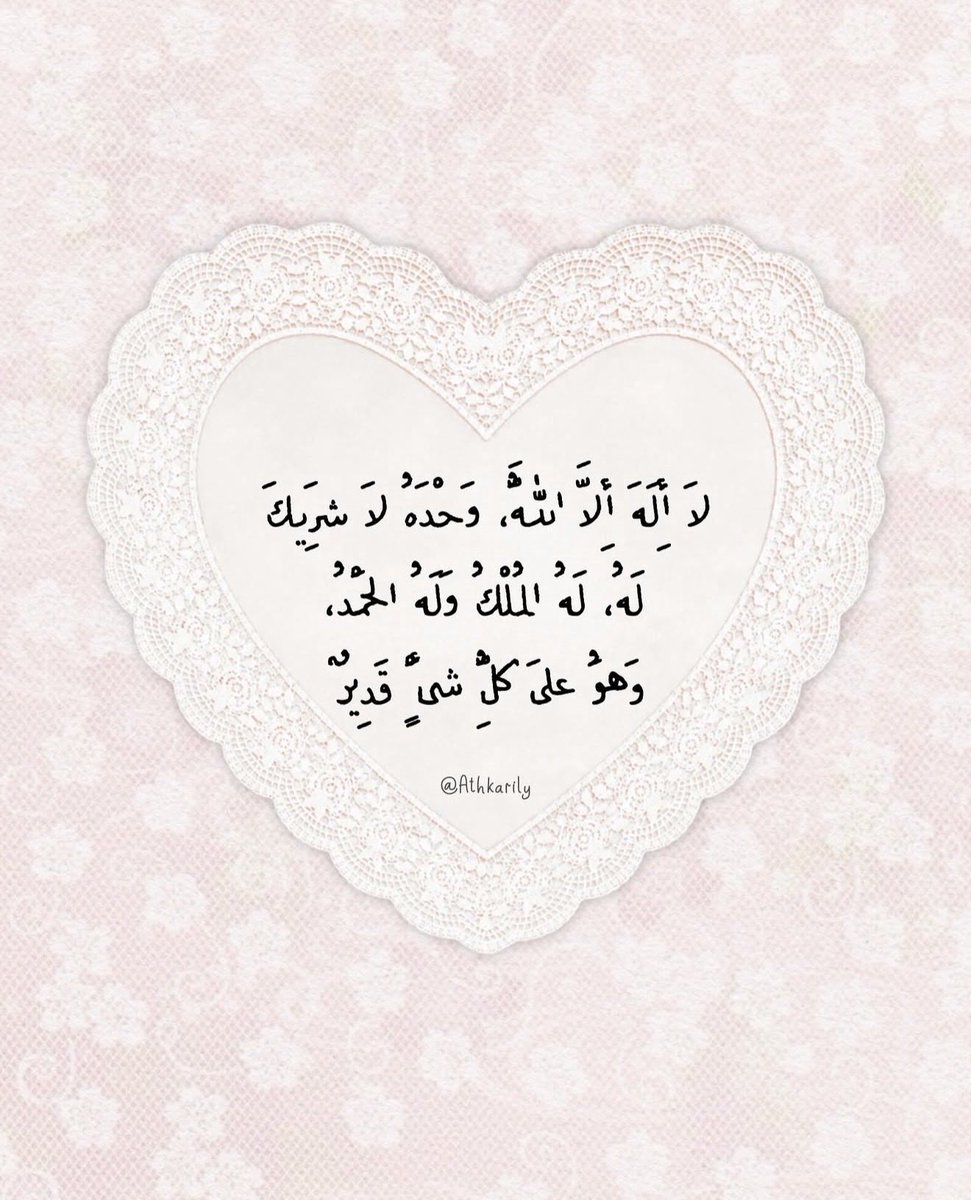 لَا أِلَهَ أِلَّا اللهُ، وَحْدَهُ لَا شَرِيكَ
لَهُ، لَهُ الْمُلْكُ وَلَهُ الْحَمْدُ،
وَهُوَ عَلىَ كُلِّ شَىْءٍ قَدِيرٌ
@Athkarily